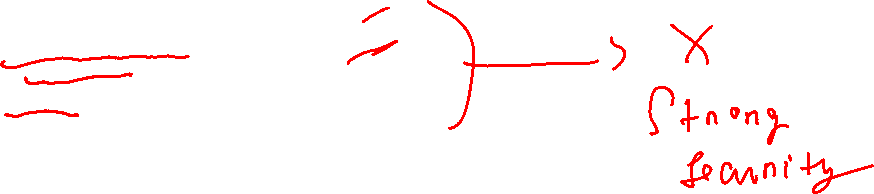 X
Strong
security